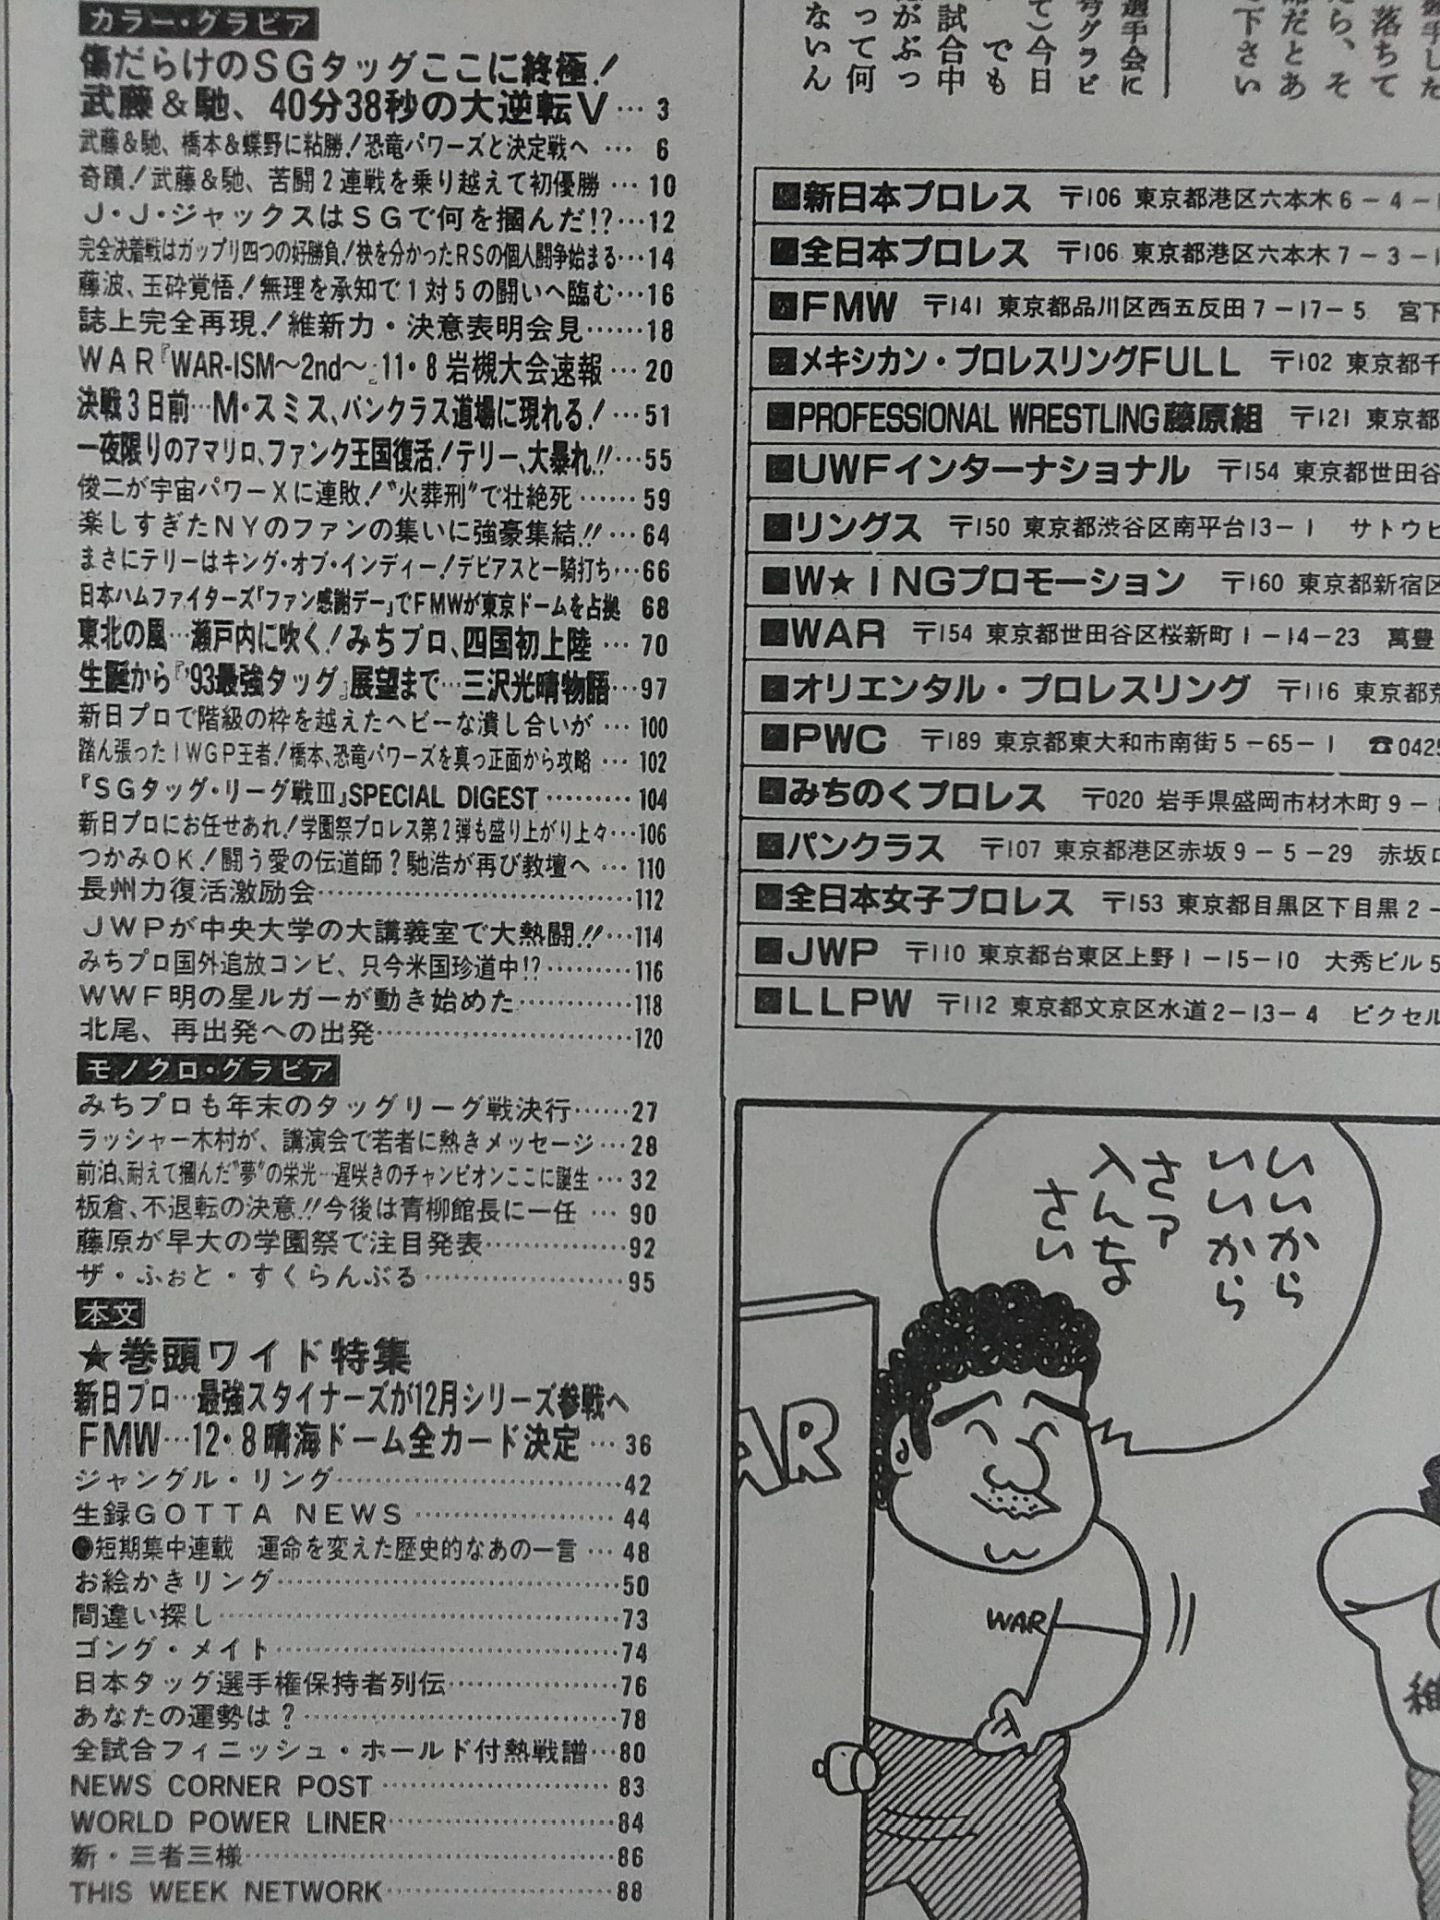 カラー・グラビア
傷だらけのSGタッグここに終極!
武藤&馳、40分38秒の大逆転V… 3
武藤&馳、橋本&蝶野に粘勝!恐竜パワーズと決定戦へ … 6
奇蹟!武藤&馳、苦闘2連戦を乗り越えて初優勝 … 10
J・J・ジャックスはSGで何を掴んだ!?…12
完全決着戦はガップリ四つの好勝負!袂を分かったRSの個人闘争始まる…14
藤波、玉砕覚悟!無理を承知で1対5の闘いへ臨む…16
誌上完全再現!維新力・決意表明会見……18
WAR『WAR-ISM〜2nd〜』11・8岩槻大会速報…20
決戦3日前…M・スミス、パンクラス道場に現れる!…51
一夜限りのアマリロ、ファンク王国復活!テリー、大暴れ!!…55
俊二が宇宙パワーXに連敗!"火葬刑"で壮絶死……59
楽しすぎたNYのファンの集いに強豪集結!!…64
まさにテリーはキング・オブ・インディー!デビアスと一騎打ち…66
日本ハムファイターズ『ファン感謝デー』でFMWが東京ドームを占拠 68
東北の風…瀬戸内に吹く!みちプロ、四国初上陸 … 70
生誕から『'93最強タッグ』展望まで…三沢光晴物語…97
新日プロで階級の枠を越えたヘビーな潰し合いが … 100
踏ん張ったIWGP王者!橋本、恐竜パワーズを真っ正面から攻略 … 102
『SGタッグ・リーグ戦III』SPECIAL DIGEST………104
新日プロにお任せあれ!学園祭プロレス第2弾も盛り上がり上々…106
つかみOK!闘う愛の伝道師?馳浩が再び教壇へ … 110
長州力復活激励会……………………………112
JWPが中央大学の大講義室で大熱闘!!…114
みちプロ国外追放コンビ、只今米国珍道中!?………116
WWF明の星ルガーが動き始めた…………118
北尾、再出発への出発………………………120
モノクロ・グラビア
みちプロも年末のタッグリーグ戦決行……27
ラッシャー木村が、講演会で若者に熱きメッセージ…28
前泊、耐えて掴んだ"夢"の栄光…遅咲きのチャンピオンここに誕生…32
板倉、不退転の決意!!今後は青柳館長に一任 … 90
藤原が早大の学園祭で注目発表……………92
ザ・ふぉと・すくらんぶる…………………95
本文
★巻頭ワイド特集
新日プロ…最強スタイナーズが12月シリーズ参戦へ
FMW…12・8晴海ドーム全カード決定 … 36
ジャングル・リング…………………………42
生録GOTTA NEWS …………………44
●短期集中連載 運命を変えた歴史的なあの一言 … 48
お絵かきリング………………………………50
間違い探し……………………………………73
ゴング・メイト………………………………74
日本タッグ選手権保持者列伝………………76
あなたの運勢は?……………………………78
全試合フィニッシュ・ホールド付熱戦譜…80
NEWS CORNER POST ……………………83
WORLD POWER LINER……………………84
新・三者三様…………………………………86
THIS WEEK NETWORK……………………88
選手会に
今グラビ
て)今日
でも
試合中
がぶっ
って何
ないん
落ちて
ら、そ
だとあ
下さい
■新日本プロレス 〒106 東京都港区六本木6-4-1
■全日本プロレス 〒106 東京都港区六本木7-3-1
■FMW 〒141 東京都品川区西五反田7-17-5 宮下
■メキシカン・プロレスリングFULL 〒102 東京都千
■PROFESSIONAL WRESTLING藤原組 〒121 東京都
■UWFインターナショナル 〒154 東京都世田谷
■リングス 〒150 東京都渋谷区南平台13-1 サトウビ
■W★INGプロモーション 〒160 東京都新宿区
■WAR 〒154 東京都世田谷区桜新町1-14-23 萬豊
■オリエンタル・プロレスリング 〒116 東京都荒
■PWC 〒189 東京都東大和市南街5-65-1 ☎0425
■みちのくプロレス 〒020 岩手県盛岡市材木町9-8
■パンクラス 〒107 東京都港区赤坂9-5-29 赤坂ロ
■全日本女子プロレス 〒153 東京都目黒区下目黒2-
■JWP 〒110 東京都台東区上野1-15-10 大秀ビル5
■LLPW 〒112 東京都文京区水道2-13-4 ピクセル
いいから
いいから
さァ
入んな
さい
AR
WAR
維